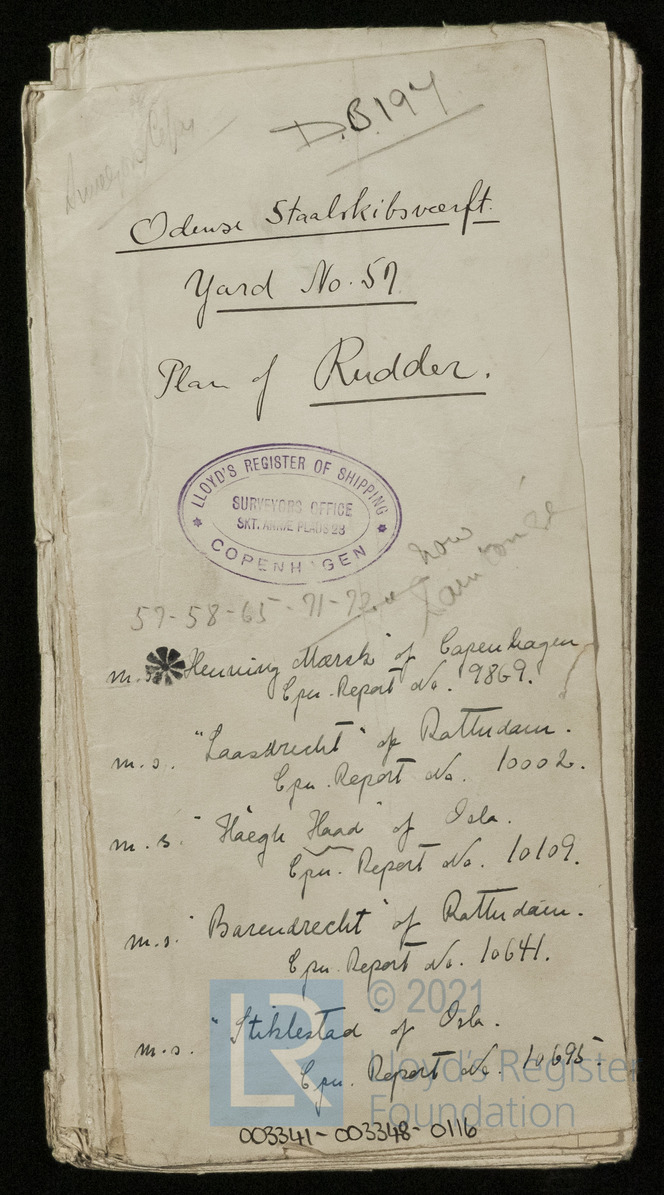 D.B.194
Odense Staalskibsværft.
Yard No. 57
Plan of Rudder.
LLOYD'S REGISTER OF SHIPPING
SURVEYORS OFFICE
SKT. ANNÆ PLADS 23
COPENHAGEN
now
57-58-65-71-72
m.s. "Henning Mærsk" of Copenhagen
Cpn. Report No. 9869.
m.s. "Laasdrecht" of Rotterdam.
Cpn. Report No. 10002.
m.s. "Høegh Hood" of Oslo.
Cpn. Report No. 10109.
m.s. "Barendrecht" of Rotterdam.
Cpn. Report No. 10641.
m.s. "Stiklestad" of Oslo.
Cpn. Report No. 10695.
LR
© 2021
Lloyd's Register
Foundation
003341-003348-0116